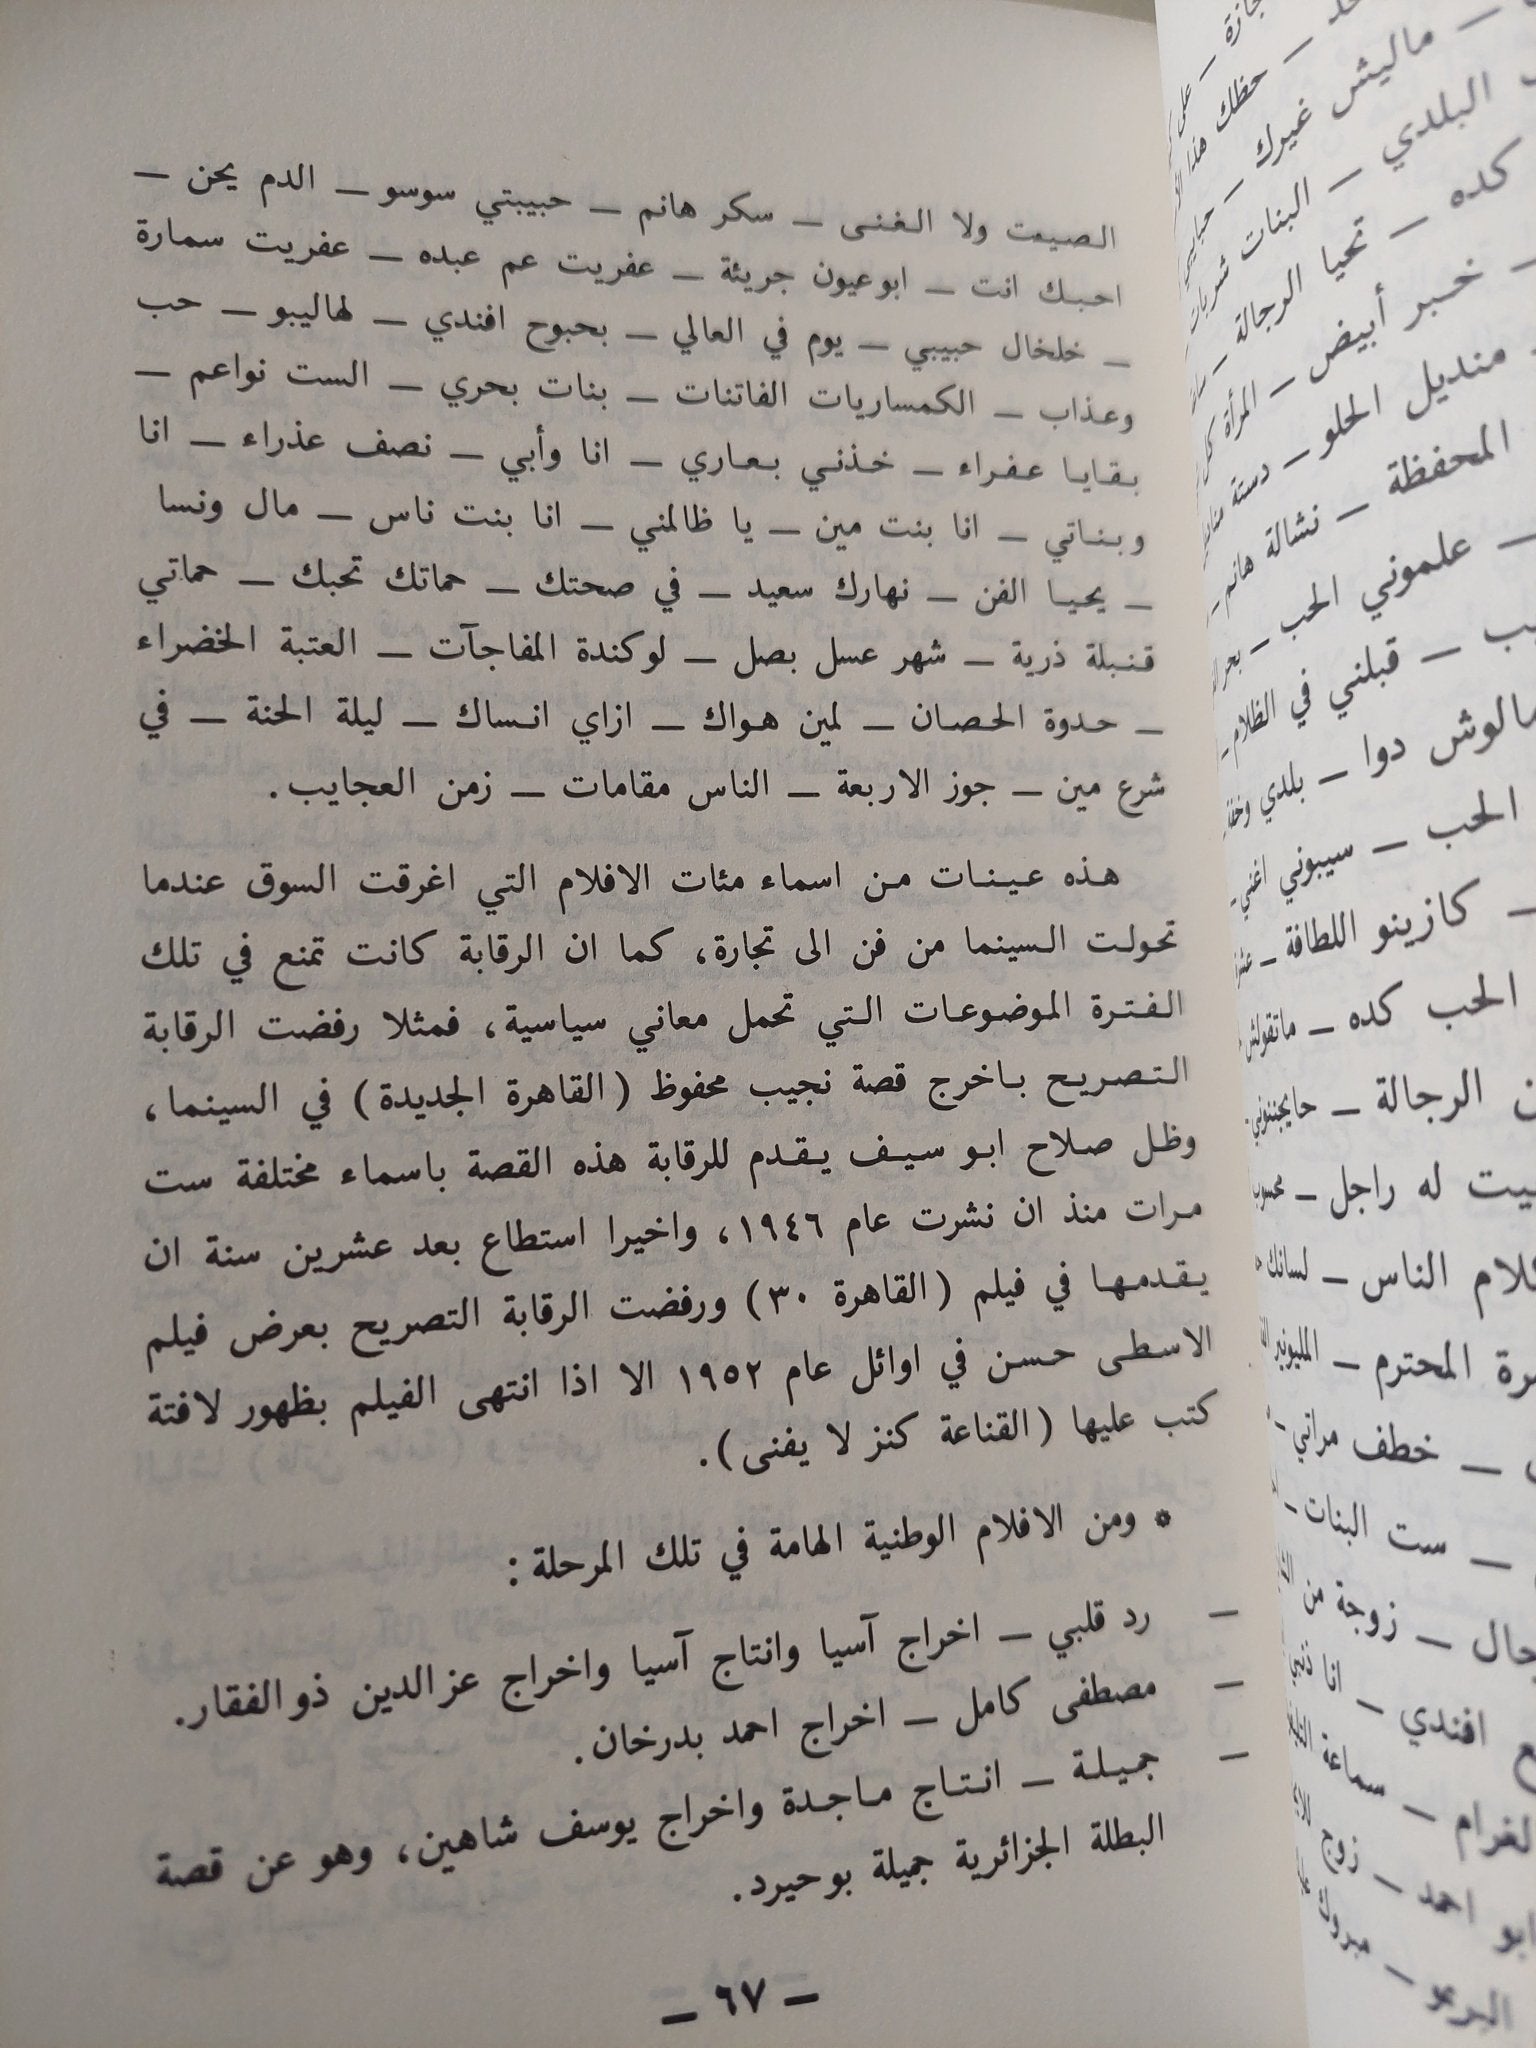 الصيت ولا الغنى ــ سكر هانم ــ حبيبتي سوسو ــ الدم يحن ــ
احبك انت ــ ابوعيون جريئة ــ عفريت عم عبده ــ عفريت سمارة
ــ خلخال حبيبي ــ يوم في العالي ــ بحبوح افندي ــ لهاليبو ــ حب
وعذاب ــ الكمساريات الفاتنات ــ بنات بحري ــ الست نواعم ــ
بقايا عفراء ــ خذني بعاري ــ انا وأبي ــ نصف عذراء ــ انا
وبناتي ــ انا بنت مين ــ يا ظالمني ــ انا بنت ناس ــ مال ونسا
ــ يحيا الفن ــ نهارك سعيد ــ في صحتك ــ حماتك تحبك ــ حماتي
قنبلة ذرية ــ شهر عسل بصل ــ لوكندة المفاجآت ــ العتبة الخضراء
ــ حدوة الحصان ــ لمين هواك ــ ازاي انساك ــ ليلة الحنة ــ في
شرع مين ــ جوز الاربعة ــ الناس مقامات ــ زمن العجايب.
هذه عينات من اسماء مئات الافلام التي اغرقت السوق عندما
تحولت السينما من فن الى تجارة، كما ان الرقابة كانت تمنع في تلك
الفترة الموضوعات التي تحمل معاني سياسية، فمثلا رفضت الرقابة
التصريح باخرج قصة نجيب محفوظ (القاهرة الجديدة) في السينما،
وظل صلاح ابو سيف يقدم للرقابة هذه القصة باسماء مختلفة ست
مرات منذ ان نشرت عام ١٩٤٦، واخيرا استطاع بعد عشرين سنة ان
يقدمها في فيلم (القاهرة ٣٠) ورفضت الرقابة التصريح بعرض فيلم
الاسطى حسن في اوائل عام ١٩٥٢ الا اذا انتهى الفيلم بظهور لافتة
كتب عليها (القناعة كنز لا يفنى).
* ومن الافلام الوطنية الهامة في تلك المرحلة:
ــ رد قلبي ــ اخراج آسيا وانتاج آسيا واخراج عزالدين ذوالفقار.
ــ مصطفى كامل ــ اخراج احمد بدرخان.
ــ جميلة ــ انتاج ماجدة واخراج يوسف شاهين، وهو عن قصة
البطلة الجزائرية جميلة بوحيرد.
ــ ٦٧ ــ
ــ ماليش غيرك ــ
البلدي ــ البنات شربات
كده ــ تحيا الرجالة ــ
ــ خبر أبيض ــ المرأة كل
منديل الحلو ــ دستة
المحفظة ــ نشالة هانم ــ
ــ علموني الحب ــ
ــ قبلني في الظلام ــ
دوا ــ بلدي
الحب ــ سيبوني اغني ــ
ــ كازينو اللطافة ــ
الحب كده ــ ماتقولش
الرجالة ــ حايجننوني
له راجل ــ
الناس ــ لسانك
المحترم ــ المليونير
ــ خطف مراتي ــ
ــ ست البنات ــ
ــ زوجة من
افندي ــ انا
ــ سماعة
ابو احمد ــ زوج
ــ مبروك